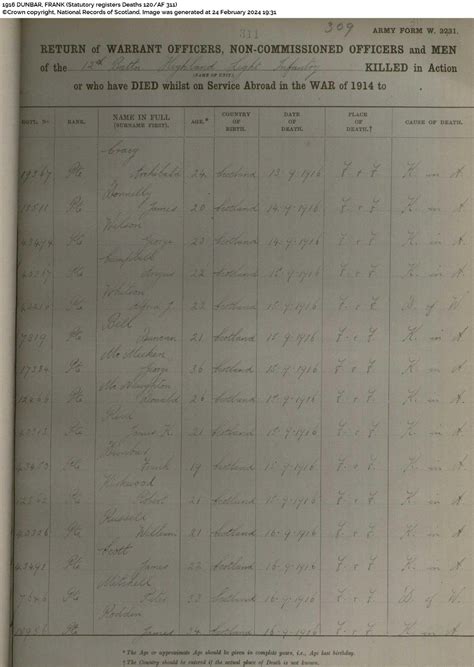 1916 DUNBAR, FRANK (Statutory registers Deaths 120/AF 311)
©Crown copyright, National Records of Scotland. Image was generated at 24 February 2024 19:31
311 309 ARMY FORM W. 3231.
RETURN of WARRANT OFFICERS, NON-COMMISSIONED OFFICERS and MEN
of the 12th Battn Highland Light Infantry KILLED in Action
(NAME OF UNIT)
or who have DIED whilst on Service Abroad in the WAR of 1914 to
REGTL. NO. RANK. NAME IN FULL (SURNAME FIRST). AGE.* COUNTRY OF BIRTH. DATE OF DEATH. PLACE OF DEATH.† CAUSE OF DEATH.
Pte Archibald 24 Scotland 13.9.1916 F. & F. K. in A.
Donnelly
Pte James 20 Scotland 14.9.1916 F. & F. K. in A.
Wilson
43494 Pte George 20 Scotland 14.9.1916 F. & F. K. in A.
Campbell
Pte Angus 22 Scotland 15.9.1916 F. & F. K. in A.
Pte 22 Scotland 15.9.1916 F. & F. D. of W.
Bell
Pte Duncan 21 Scotland 15.9.1916 F. & F. K. in A.
17334 Pte George 36 Scotland 15.9.1916 F. & F. K. in A.
McNaughton
Pte Donald 26 Scotland 15.9.1916 F. & F. K. in A.
Reid
Pte James 21 Scotland 15.9.1916 F. & F. K. in A.
Dunbar
Pte Frank 19 Scotland 15.9.1916 F. & F. K. in A.
Kirkwood
Pte Robert 21 Scotland 15.9.1916 F. & F. K. in A.
Russell
Pte William 21 Scotland 16.9.1916 F. & F. K. in A.
Scott
43491 Pte James 22 Scotland 16.9.1916 F. & F. K. in A.
Mitchell
Pte Peter 33 Scotland 16.9.1916 F. & F. D. of W.
Rodden
Pte James 34 Scotland 16.9.1916 F. & F. K. in A.
* The Age or approximate Age should be given in complete years, i.e., Age last birthday.
† The Country should be entered if the actual place of Death is not known.